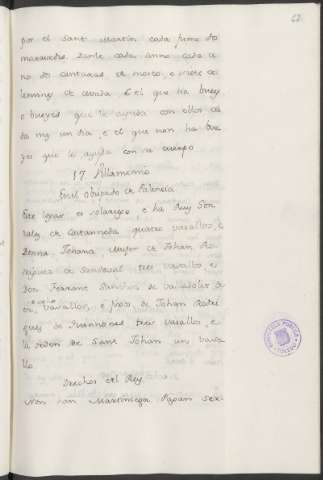 62
por el Sant Martin cada fumo dos
maravedis. Danle cada anno cada u
no dos cantaras de mosto, e siete ce
lemines de cevada. E el que ha buey
o bueyes que le ayuda con ellos ca
da mes un dia, e el que non ha bue
yes que le ayuda con su cuerpo
17 Villamemio
En el obispado de Palencia
Este logar es solariego, e ha Ruy Gon
zalez de Castanneda quatro vasallos, e
Donna Johana, Muger de Johan Ro
driguez de Sandoval tres vasallos e
Don Ferrant Sanches de Valladolit de
os vasallos, e fijos de Johan Rodri
guez de tres vasallos, e
la orden de Sant Johan un vasa
llo.
Derechos del Rey
Non han Martiniega. Pagan ser-
BIBLIOTECA PUBLICA
TOLEDO